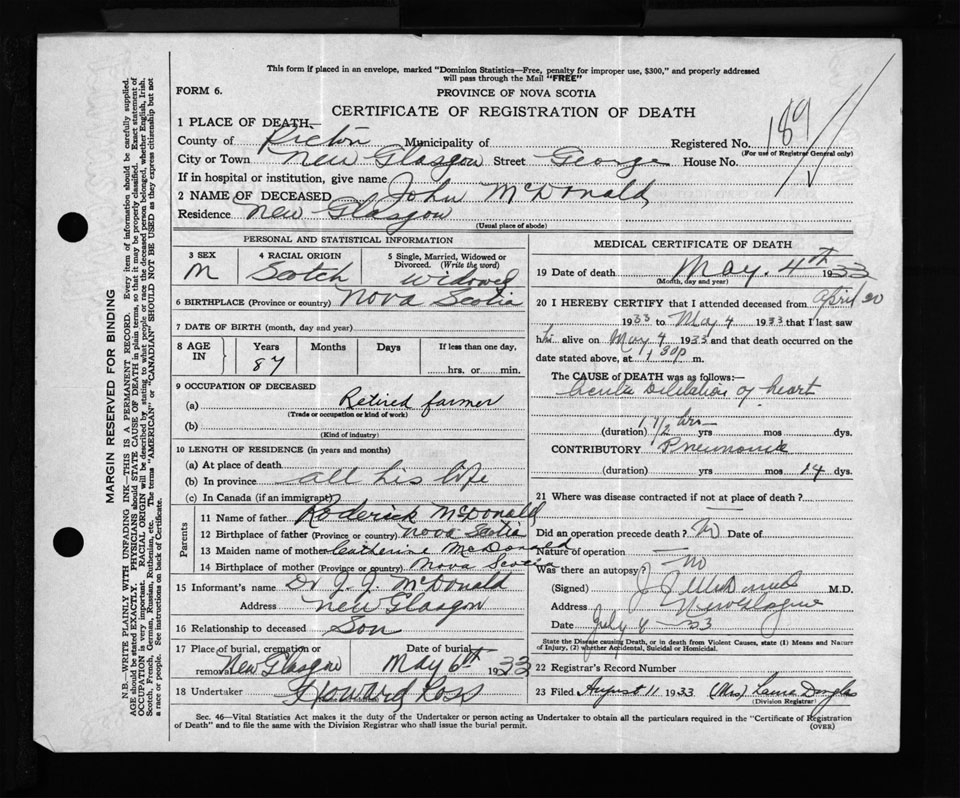 This form if placed in an envelope, marked "Dominion Statistics—Free, penalty for improper use, $300," and properly addressed
will pass through the Mail "FREE"
FORM 6.
PROVINCE OF NOVA SCOTIA
CERTIFICATE OF REGISTRATION OF DEATH
189
1 PLACE OF DEATH—
County of Pictou Municipality of Registered No.
(For use of Registrar General only)
City or Town New Glasgow Street George House No.
If in hospital or institution, give name
2 NAME OF DECEASED John McDonald
Residence New Glasgow
(Usual place of abode)
PERSONAL AND STATISTICAL INFORMATION
3 SEX 4 RACIAL ORIGIN 5 Single, Married, Widowed or
Divorced. (Write the word)
M Scotch Widowed
6 BIRTHPLACE (Province or country) Nova Scotia
7 DATE OF BIRTH (month, day and year)
8 AGE IN Years Months Days If less than one day,
87 hrs. or min.
9 OCCUPATION OF DECEASED
(a) Retired farmer
(Trade or occupation or kind of work)
(b)
(Kind of industry)
10 LENGTH OF RESIDENCE (in years and months)
(a) At place of death
(b) In province all his life
(c) In Canada (if an immigrant)
Parents
11 Name of father Roderick McDonald
12 Birthplace of father (Province or country) Nova Scotia
13 Maiden name of mother Catherine McDonald
14 Birthplace of mother (Province or country) Nova Scotia
15 Informant's name Dr J. J. McDonald
Address New Glasgow
16 Relationship to deceased Son
17 Place of burial, cremation or Date of burial
removal New Glasgow May 6th 1933
18 Undertaker Howard Ross
MEDICAL CERTIFICATE OF DEATH
19 Date of death May. 4th 1933
(Month, day and year)
20 I HEREBY CERTIFY that I attended deceased from April 20
1933 to May 4 1933 that I last saw
him alive on May 4 1933 and that death occurred on the
date stated above, at 1 30p m.
The CAUSE of DEATH was as follows:—
Acute Dilitation of heart
(duration) 1 1/2 hrs yrs mos dys.
CONTRIBUTORY Pneumonia
(duration) yrs mos 14 dys.
21 Where was disease contracted if not at place of death?
Did an operation precede death? No Date of
Nature of operation
Was there an autopsy? no
(Signed) J. J. McDonald M.D.
Address New Glasgow
Date July 4 — 33
State the Disease causing Death, or in death from Violent Causes, state (1) Means and Nature
of Injury, (2) whether Accidental, Suicidal or Homicidal.
22 Registrar's Record Number
23 Filed August 11 1933 (Mrs) Laura Douglas
(Division Registrar)
Sec. 46—Vital Statistics Act makes it the duty of the Undertaker or person acting as Undertaker to obtain all the particulars required in the "Certificate of Registration
of Death" and to file the same with the Division Registrar who shall issue the burial permit.
(OVER)
MARGIN RESERVED FOR BINDING
N.B.—WRITE PLAINLY WITH UNFADING INK—THIS IS A PERMANENT RECORD. Every item of information should be carefully supplied.
AGE should be stated EXACTLY. PHYSICIANS should STATE CAUSE OF DEATH in plain terms, so that it may be properly classified. Exact statement of
OCCUPATION is very important. RACIAL ORIGIN will be described by stating to what people or race the deceased person belonged, whether English, Irish,
Scotch, French, German, Russian, Ruthenian, etc. The terms "AMERICAN" or "CANADIAN" SHOULD NOT BE USED as they express citizenship but not
a race or people. See instructions on back of Certificate.